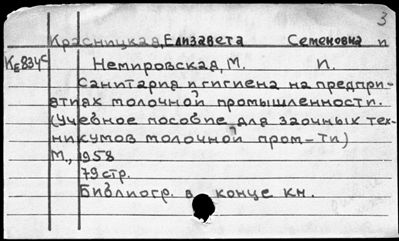 3
Красницкая, Елизавета Семеновна п
КЕ834с Немировская, М. П.
Санитария и гигиена на предпри-
ятиях молочной промышленности.
(Учебное пособие для заочных тех-
никумов молочной пром-ти)
М., 1958
79 стр.
Библиогр. в конце кн.